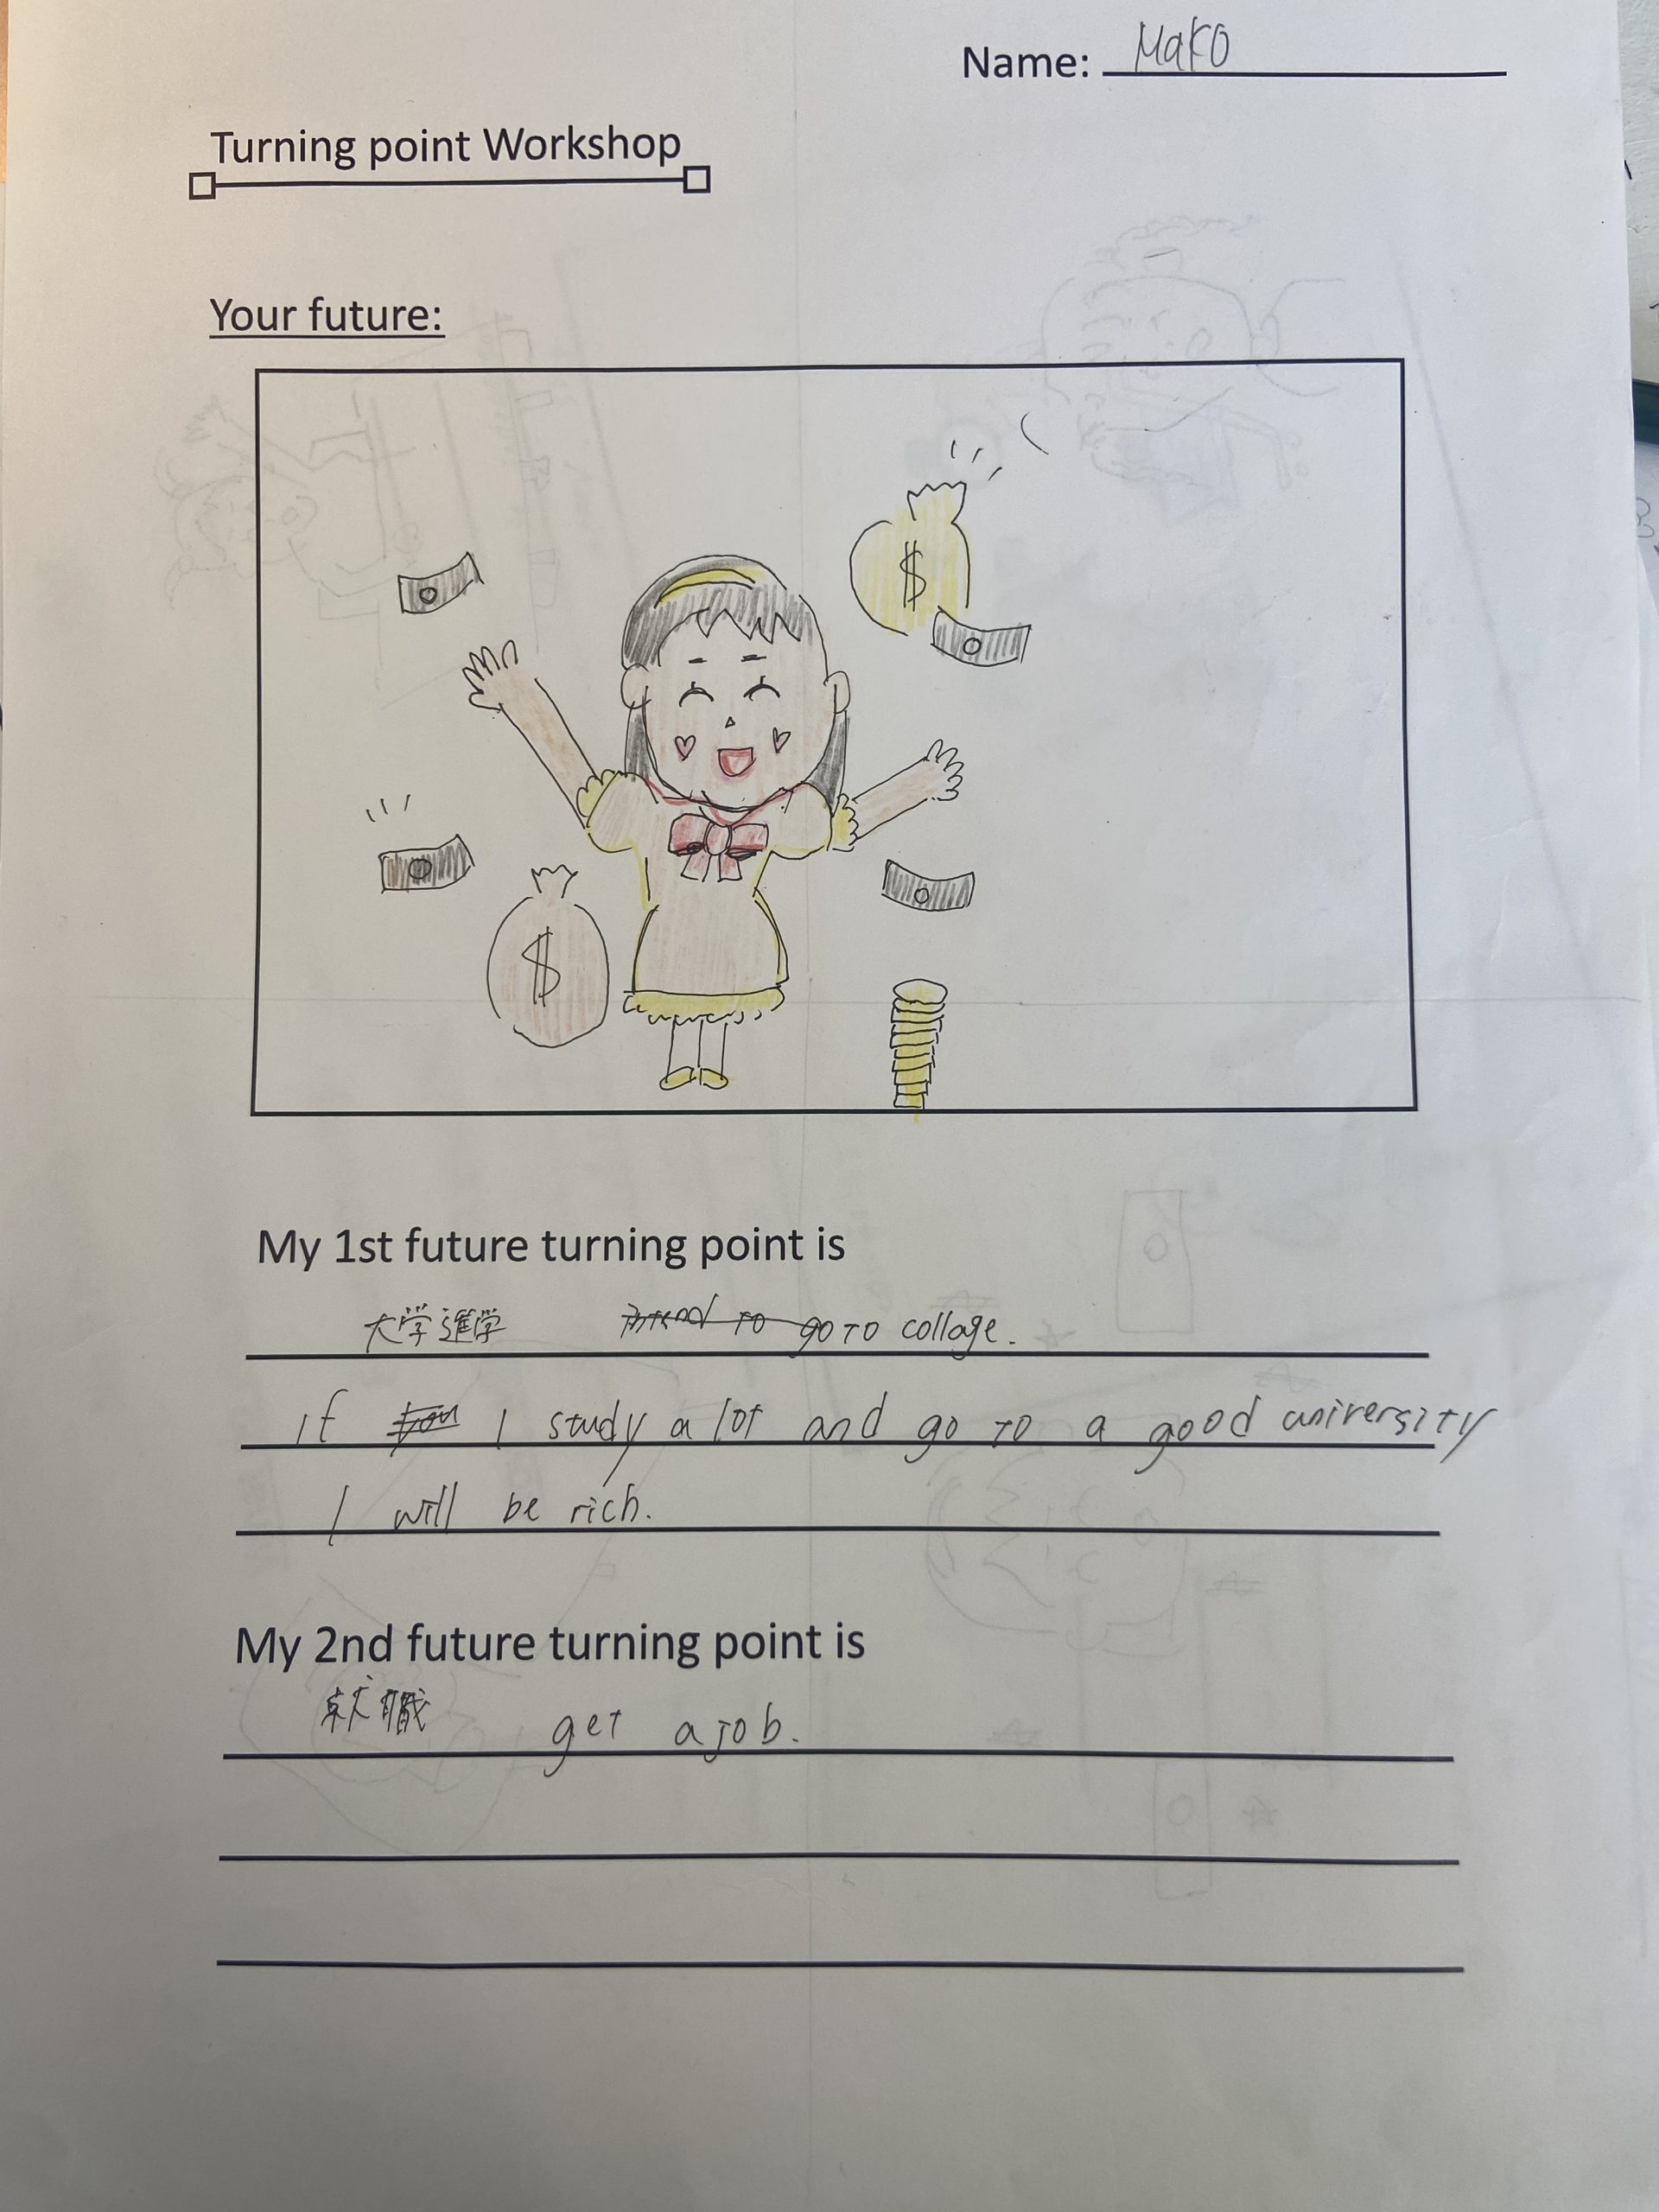 Name: Mako
Turning point Workshop
Your future:
$
$
My 1st future turning point is
大学進学 go to collage.
If I study a lot and go to a good university
I will be rich.
My 2nd future turning point is
就職 get a job.